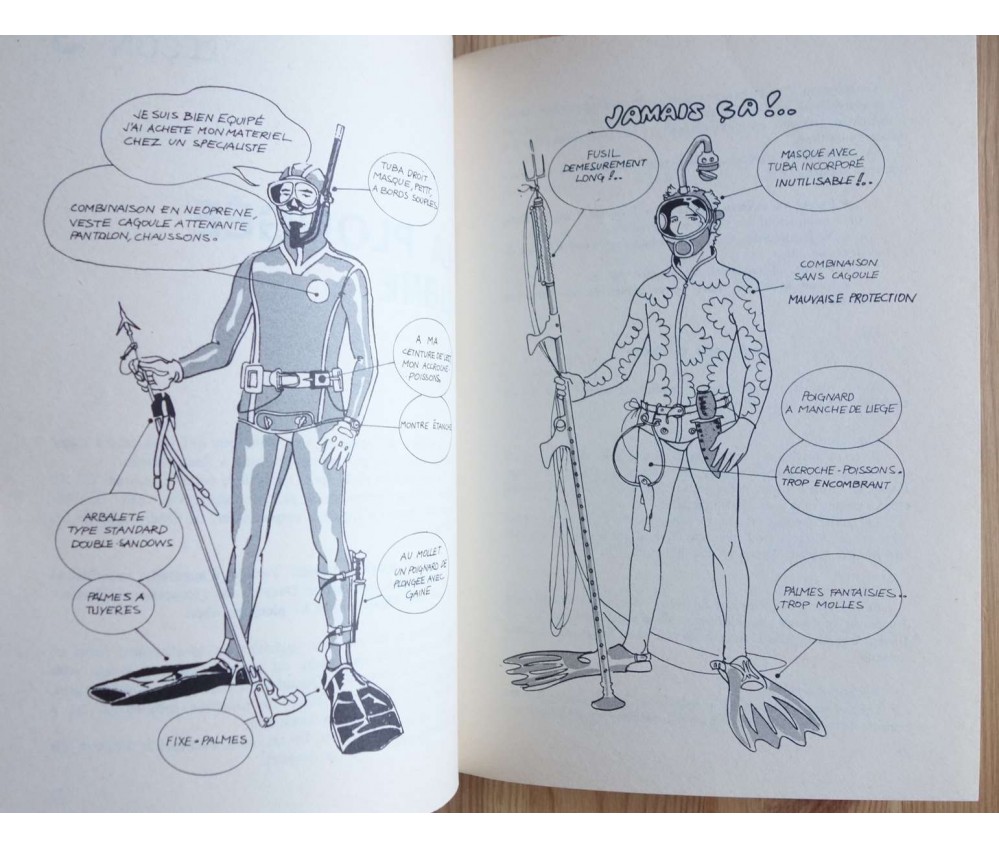 JE SUIS BIEN EQUIPÉ
J'AI ACHETE MON MATERIEL
CHEZ UN SPECIALISTE
COMBINAISON EN NEOPRENE,
VESTE CAGOULE ATTENANTE
PANTALON, CHAUSSONS.
TUBA DROIT
MASQUE, PETIT,
A BORDS SOUPLES
A MA
CEINTURE DE LEST
MON ACCROCHE-
POISSONS
MONTRE ÉTANCHE
ARBALETE
TYPE STANDARD
DOUBLE-SANDOWS
PALMES A
TUYERES
AU MOLLET
UN POIGNARD DE
PLONGÉE AVEC
GAINE
FIXE-PALMES
JAMAIS ÇA!..
FUSIL
DEMESUREMENT
LONG!..
MASQUE AVEC
TUBA INCORPORÉ
INUTILISABLE!..
COMBINAISON
SANS CAGOULE
MAUVAISE PROTECTION
POIGNARD
A MANCHE DE LIEGE
ACCROCHE-POISSONS.
TROP ENCOMBRANT
PALMES FANTAISIES..
TROP MOLLES